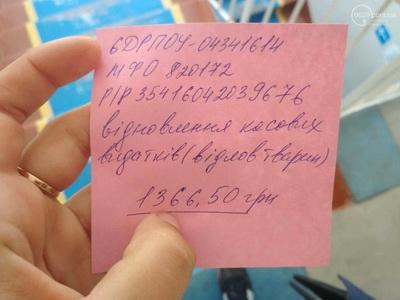 ЄДРПОУ-04341614
МФО 820172
Р/Р 35416042039676
відновлення касових
видатків (відлов тварин)
1366,50 грн